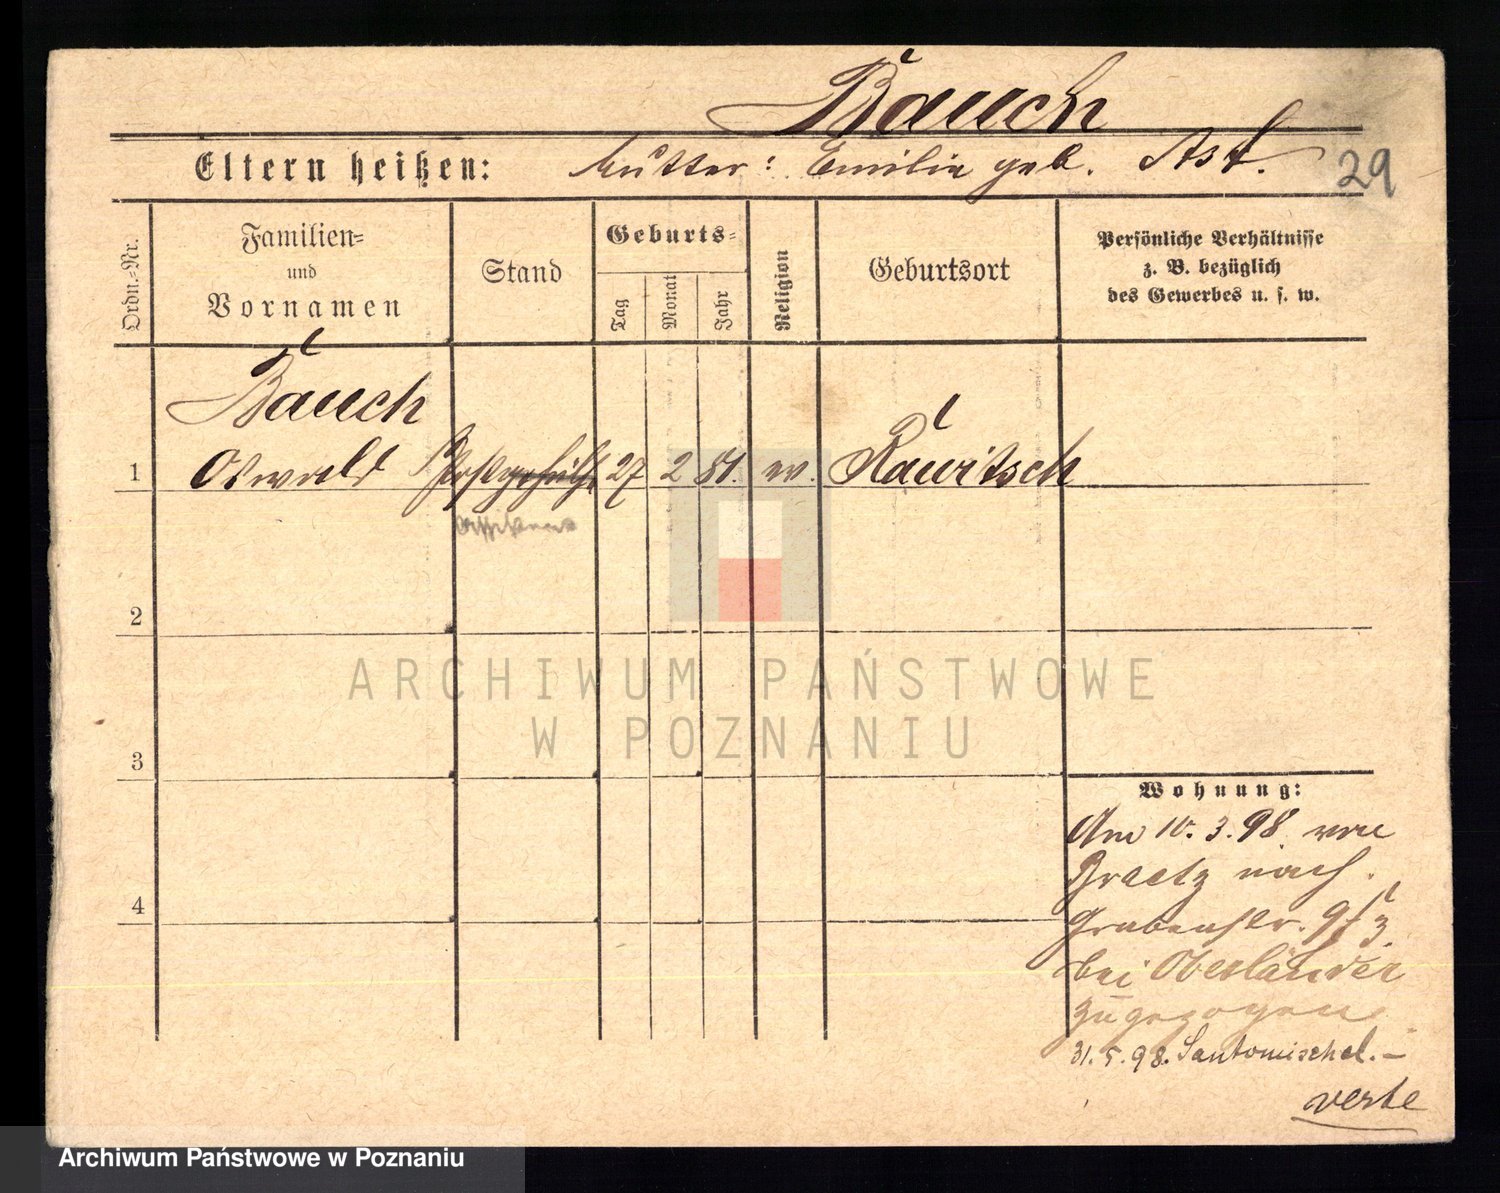 Bauch
Eltern heißen: Mutter: Emilie geb. Ast.
29
Ordn.-Nr.
Familien-
und
Vornamen
Stand
Geburts-
Tag
Monat
Jahr
Religion
Geburtsort
Persönliche Verhältnisse
z. B. bezüglich
des Gewerbes u. s. w.
Bauch
1 Oswald Postgehilfe 27 2 81. ev. Rawitsch
2
ARCHIWUM PAŃSTWOWE
W POZNANIU
3
Wohnung:
Am 10. 3. 98 von
Braetz nach
4
Grabenstr. 9
bei Oberländer
zugezogen
31. 5. 98. Santomischel. –
verte
Archiwum Państwowe w Poznaniu